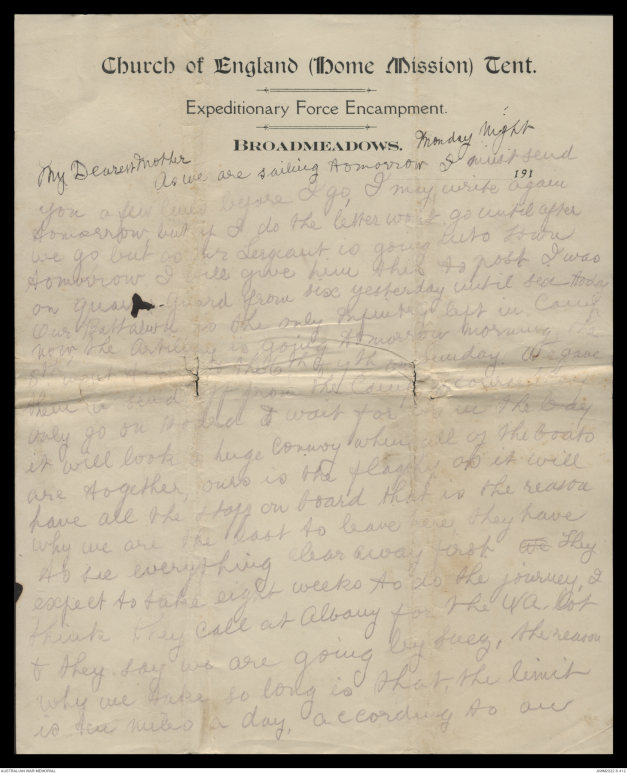 Church of England (Home Mission) Tent.
Expeditionary Force Encampment.
BROADMEADOWS. Monday Night
191
My Dearest Mother
As we are sailing tomorrow I must send
you a few lines before I go, I may write again
tomorrow but if I do the letter wont go until after
we go but as our Sergeant is going into town
tomorrow I will give him this to post I was
on guard from six yesterday until six today
Our Battalion is the only Infantry left in Camp
now, the Artillery is going tomorrow morning, the
8th went the 7th on Sunday we gave
them a send off from the Camp, of course they
only go on board & wait for us in the bay
it will look a huge convoy when all of the boats
are together, ours is the flagship as it will
have all the staff on board that is the reason
why we are the last to leave here they have
to see everything clear away first We They
expect to take eight weeks to do the journey, I
think they call at Albany for the WA. lot
& they say we are going by Suez, the reason
why we take so long is that the limit
is ten miles a day, according to our